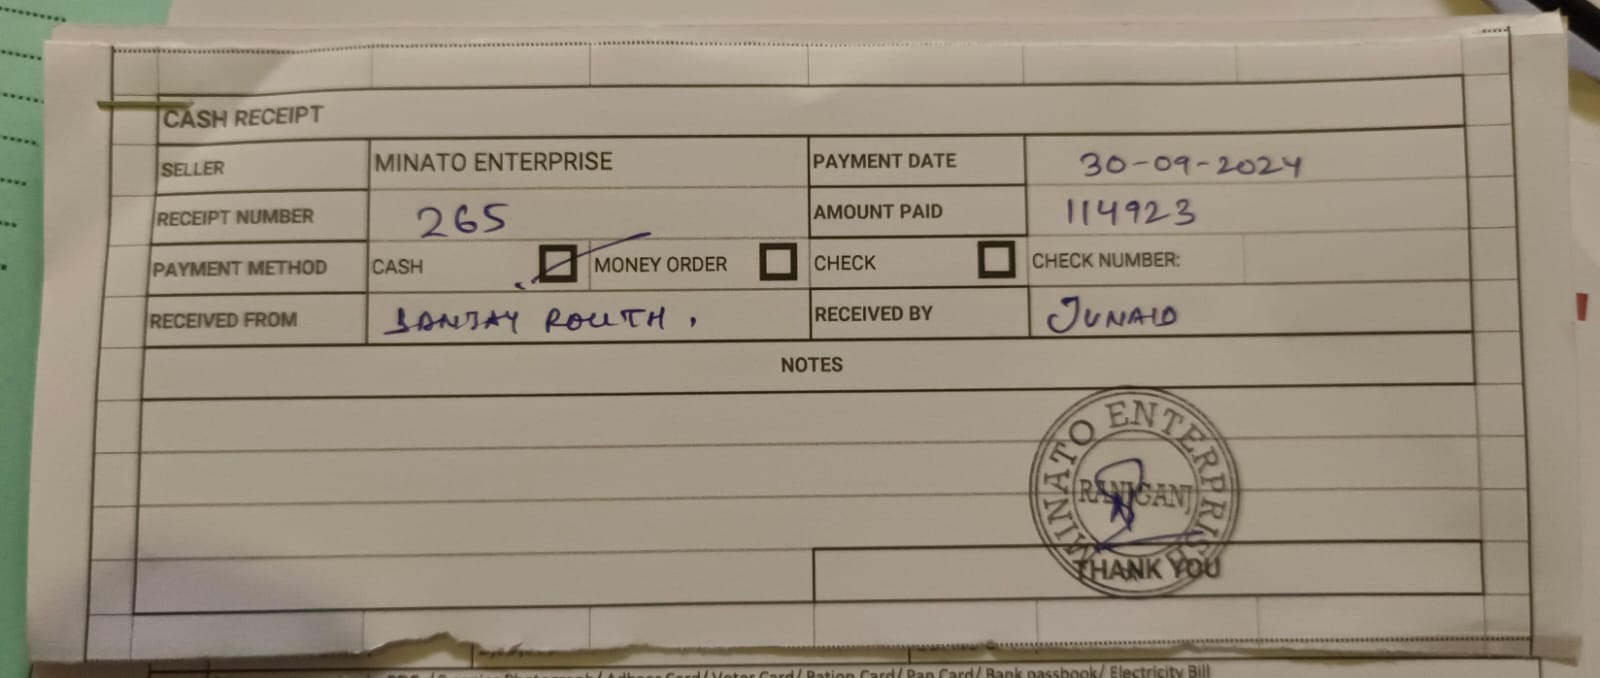 CASH RECEIPT
SELLER MINATO ENTERPRISE PAYMENT DATE 30-09-2024
RECEIPT NUMBER 265 AMOUNT PAID 114923
PAYMENT METHOD CASH MONEY ORDER CHECK CHECK NUMBER:
RECEIVED FROM SANJAY ROUTH. RECEIVED BY JUNAID
NOTES
MINATO ENTERPRISE
RANIGANJ
THANK YOU
Card/ Voter Card/ Ration Card/ Pan Card/ Bank passbook/ Electricity Bill